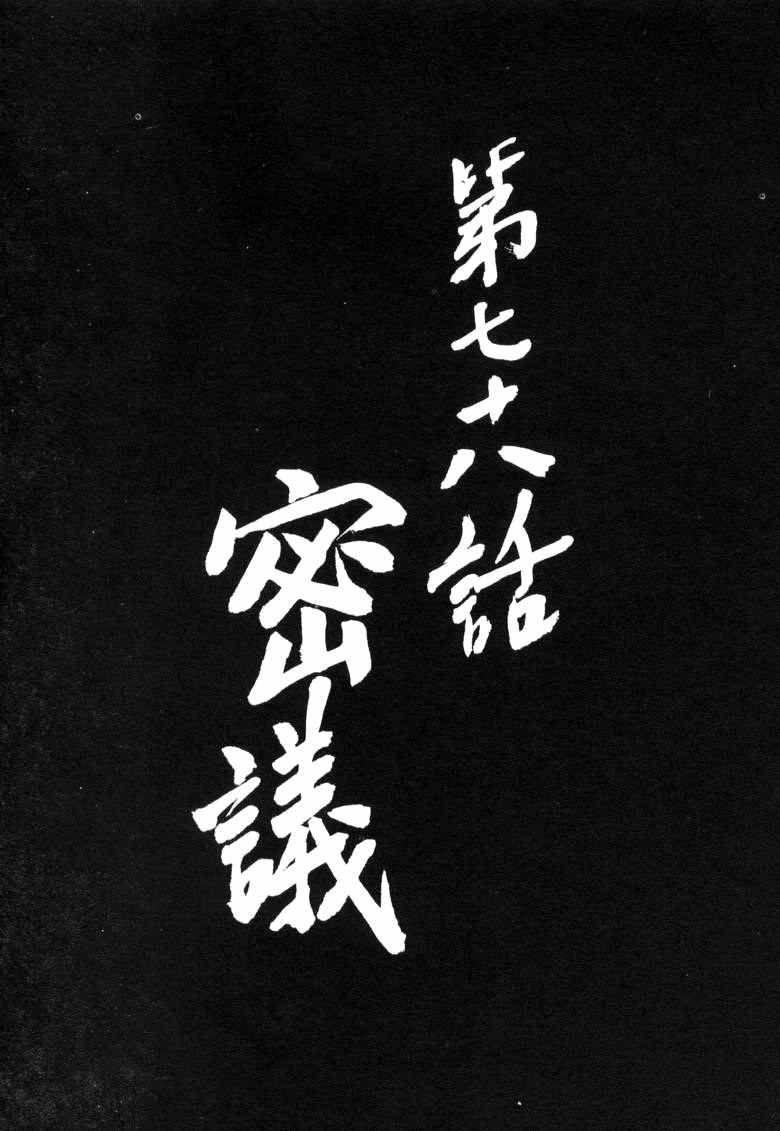 第七十八話
密議